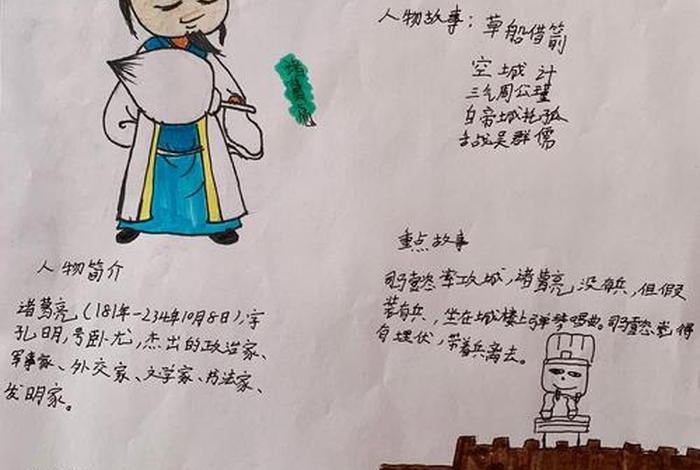 诸葛亮
人物简介
诸葛亮（181年—234年10月8日），字
孔明，号卧龙，杰出的政治家、
军事家、外交家、文学家、书法家、
发明家。
人物故事：草船借箭
空城计
三气周公瑾
白帝城托孤
舌战吴群儒
重点故事
司马懿率攻城，诸葛亮没有兵，但假
装有兵，坐在城楼上弹琴唱曲。司马懿觉得
有埋伏，带着兵离去。